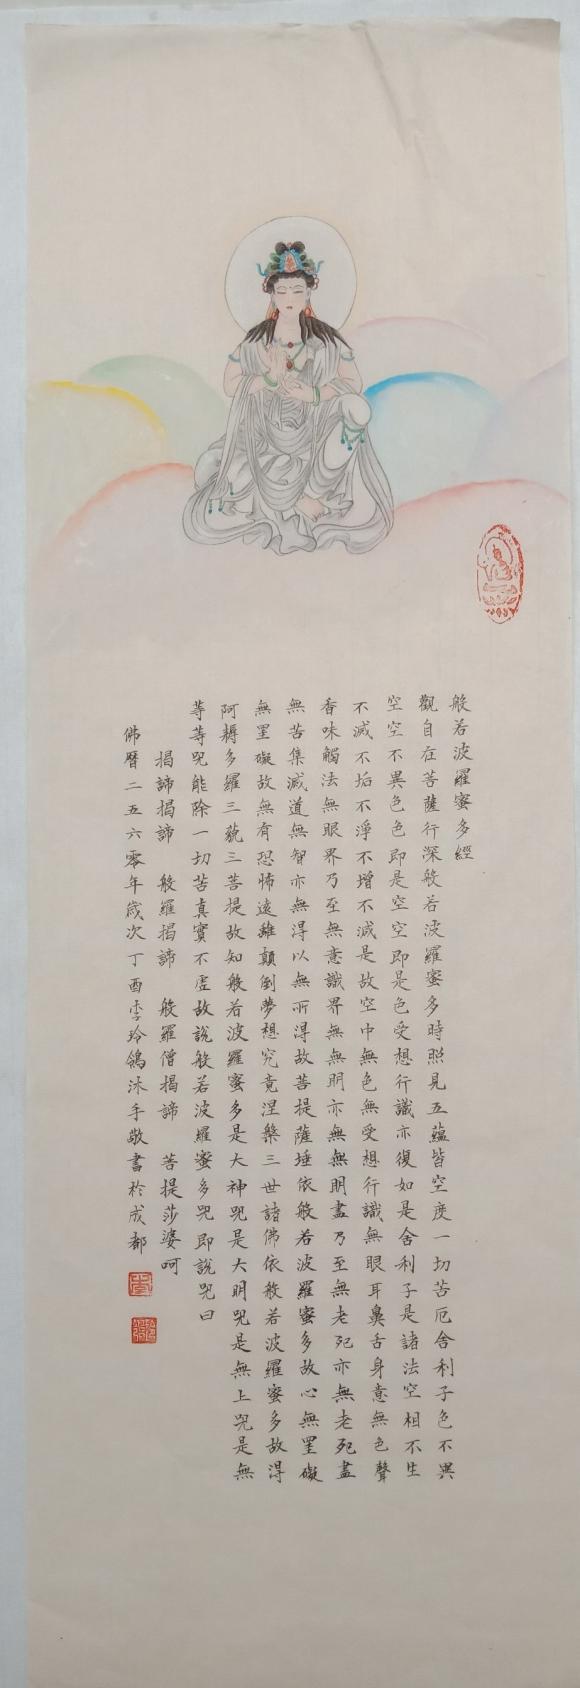 般若波羅蜜多經
觀自在菩薩行深般若波羅蜜多時照見五蘊皆空度一切苦厄舍利子色不異
空空不異色色即是空空即是色受想行識亦復如是舍利子是諸法空相不生
不滅不垢不淨不增不減是故空中無色無受想行識無眼耳鼻舌身意無色聲
香味觸法無眼界乃至無意識界無無明亦無無明盡乃至無老死亦無老死盡
無苦集滅道無智亦無得以無所得故菩提薩埵依般若波羅蜜多故心無罣礙
無罣礙故無有恐怖遠離顛倒夢想究竟涅槃三世諸佛依般若波羅蜜多故得
阿耨多羅三藐三菩提故知般若波羅蜜多是大神咒是大明咒是無上咒是無
等等咒能除一切苦真實不虛故說般若波羅蜜多咒即說咒曰
揭諦揭諦 般羅揭諦 般羅僧揭諦 菩提莎婆呵
佛曆二五六零年歲次丁酉李玲鴿沐手敬書於成都